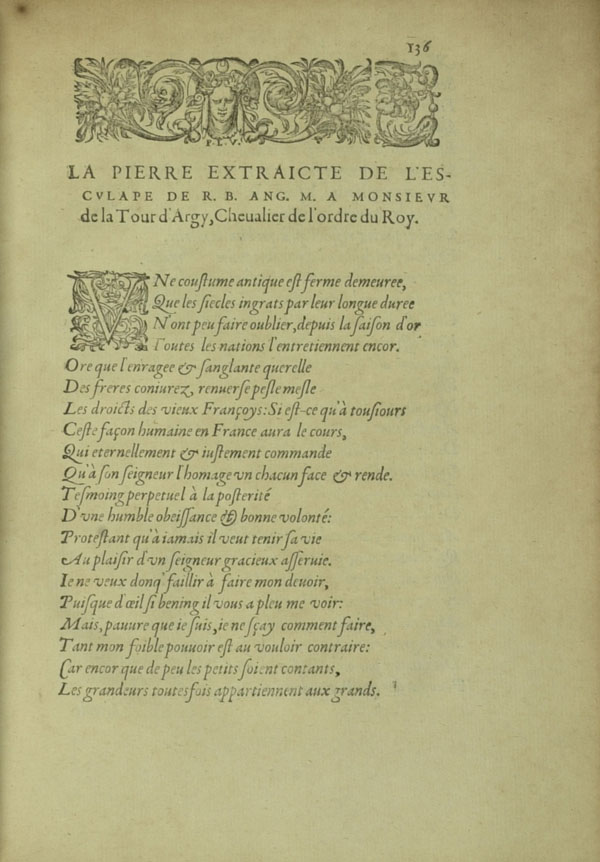 136
F.L.V.
LA PIERRE EXTRAICTE DE L'ES-
CVLAPE DE R. B. ANG. M. A MONSIEVR
de la Tour d'Argy, Cheualier de l'ordre du Roy.
VNe couſtume antique eſt ferme demeuree,
Que les ſiecles ingrats par leur longue duree
N'ont peu faire oublier, depuis la ſaiſon d'or
Toutes les nations l'entretiennent encor.
Ore que l'enragee & ſanglante querelle
Des freres coniurez, renuerſe peſle meſle
Les droicts des vieux Françoys: Si eſt-ce qu'à touſiours
Ceſte façon humaine en France aura le cours,
Qui eternellement & iuſtement commande
Qu'à ſon ſeigneur l'homage vn chacun face & rende.
Teſmoing perpetuel à la poſterité
D'vne humble obeiſſance & bonne volonté:
Proteſtant qu'à iamais il veut tenir ſa vie
Au plaiſir d'vn ſeigneur gracieux aſſeruie.
Ie ne veux donq' faillir à faire mon deuoir,
Puiſque d'œil ſi bening il vous a pleu me voir:
Mais, pauure que ie ſuis, ie ne ſçay comment faire,
Tant mon foible pouuoir eſt au vouloir contraire:
Car encor que de peu les petits ſoient contants,
Les grandeurs toutesfois appartiennent aux grands.